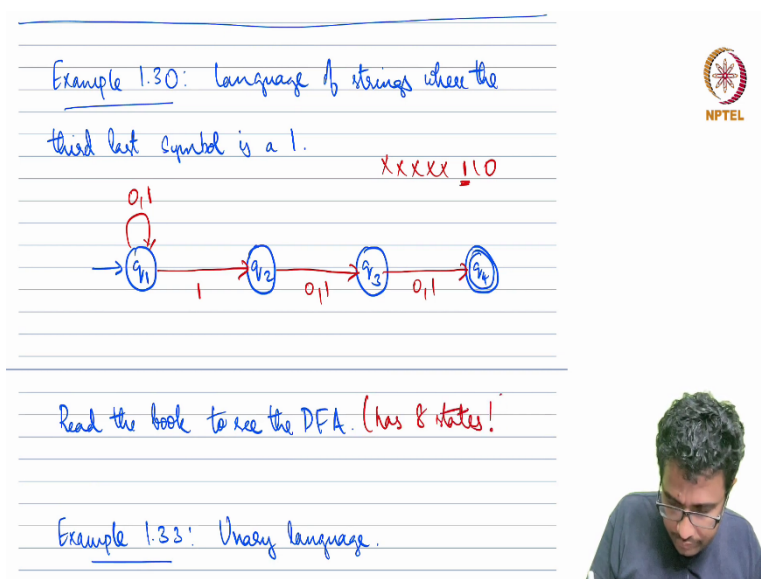 Example 1.30: Language of strings where the
third last symbol is a 1.
XXXXX 110
0,1
q1 q2 q3 q4
1 0,1 0,1
Read the book to see the DFA. (has 8 states!
Example 1.33: Unary language.
NPTEL